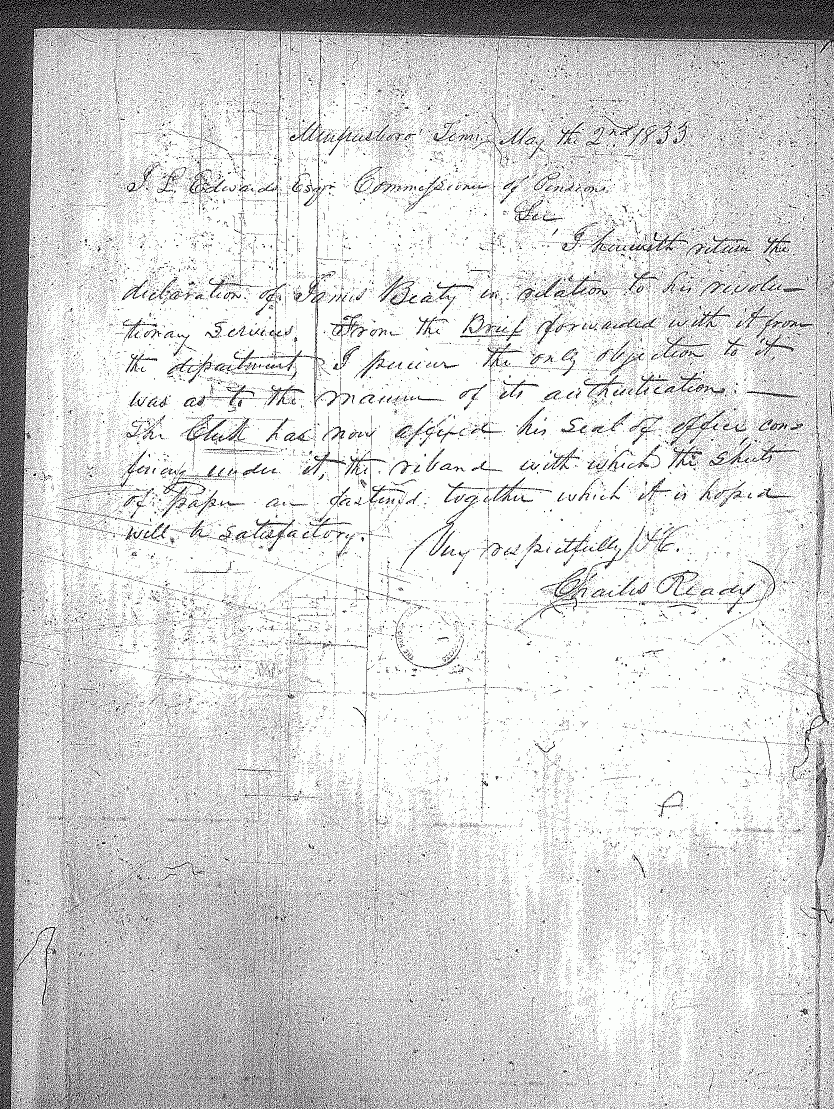 Murfreesboro' Tenn. May the 2nd 1833
J. L. Edwards Esqr. Commissioner of Pensions
Sir,
I herewith return the
declaration of James Beaty in relation to his revolu-
tionary services. From the Brief forwarded with it from
the department, I perceive the only objection to it,
was as to the manner of its authentication: —
The Clerk has now affixed his seal of office con-
fining under it, the riband with which the sheets
of Paper are fastened together which it is hoped
will be satisfactory.
Very respectfully &C.
Charles Ready